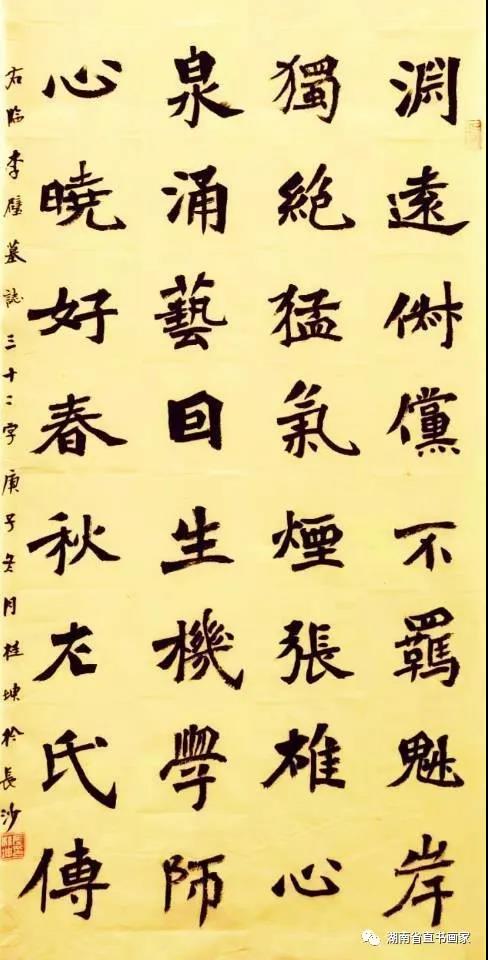 淵遠俶儻不羈魁岸
獨絕猛氣煙張雄心
泉涌藝囙生機學師
心曉好春秋左氏傳
右臨李璧墓誌三十二字庚子冬月桂坤於長沙
湖南省直书画家